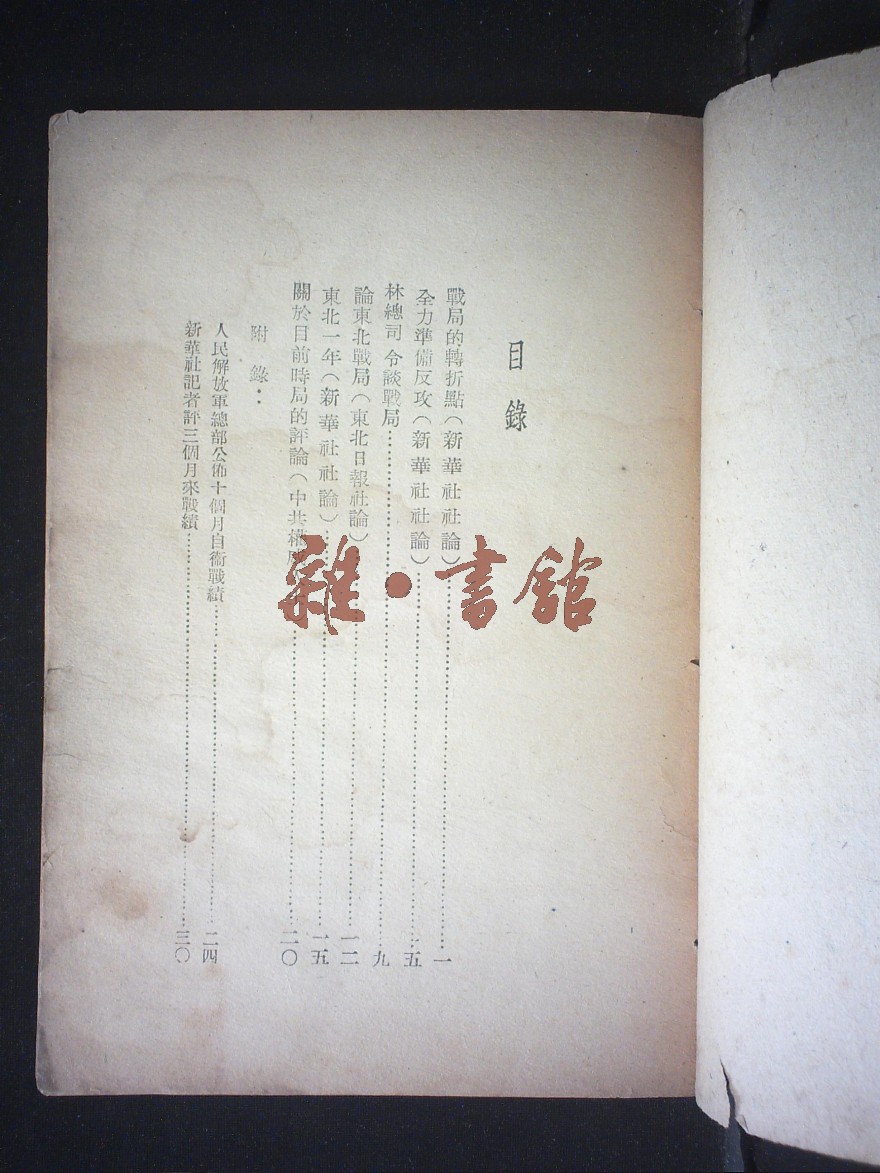 目錄
戰局的轉折點（新華社社論）……一
全力準備反攻（新華社社論）……五
林總司令談戰局……九
論東北戰局（東北日報社論）……一二
東北一年（新華社社論）……一五
關於目前時局的評論（中共權……二〇
附錄：
人民解放軍總部公佈十個月自衛戰績……二四
新華社記者評三個月來戰績……三〇
雜·書館